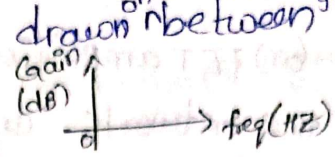 drawn between
Gain
(dB)
0
freq(HZ)